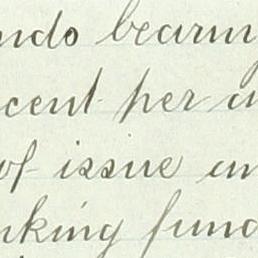 ndo bearing
cent per an
of issue an
nking fund